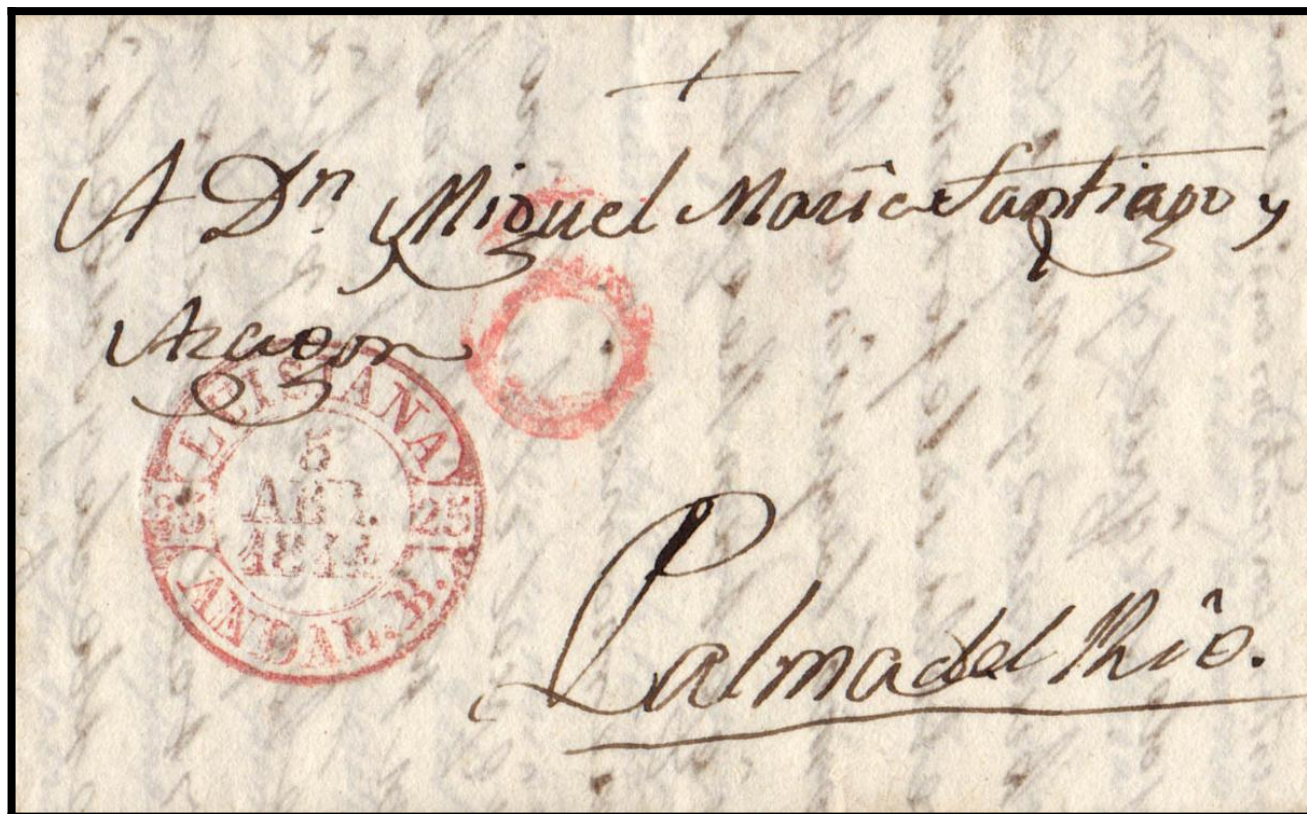 A Dn. Miguel Maria Santiago y
Aragon
LUISIANA
5
ABR.
184
25 25
ANDAL. B.
Palma del Rio.